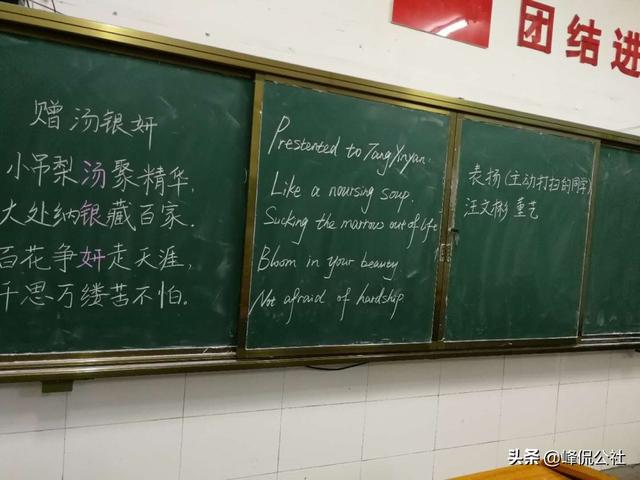 团结进
赠汤银妍
小吊梨汤聚精华,
大处纳银藏百家.
百花争妍走天涯,
千思万缕苦不怕.
Prestented to Tang Yinyan.
Like a noursing soup.
Sucking the marrous out of life
Bloom in your beauty
Not afraid of hardship.
表扬(主动打扫的同学)
汪文彬 董艺
头条 @峰侃公社